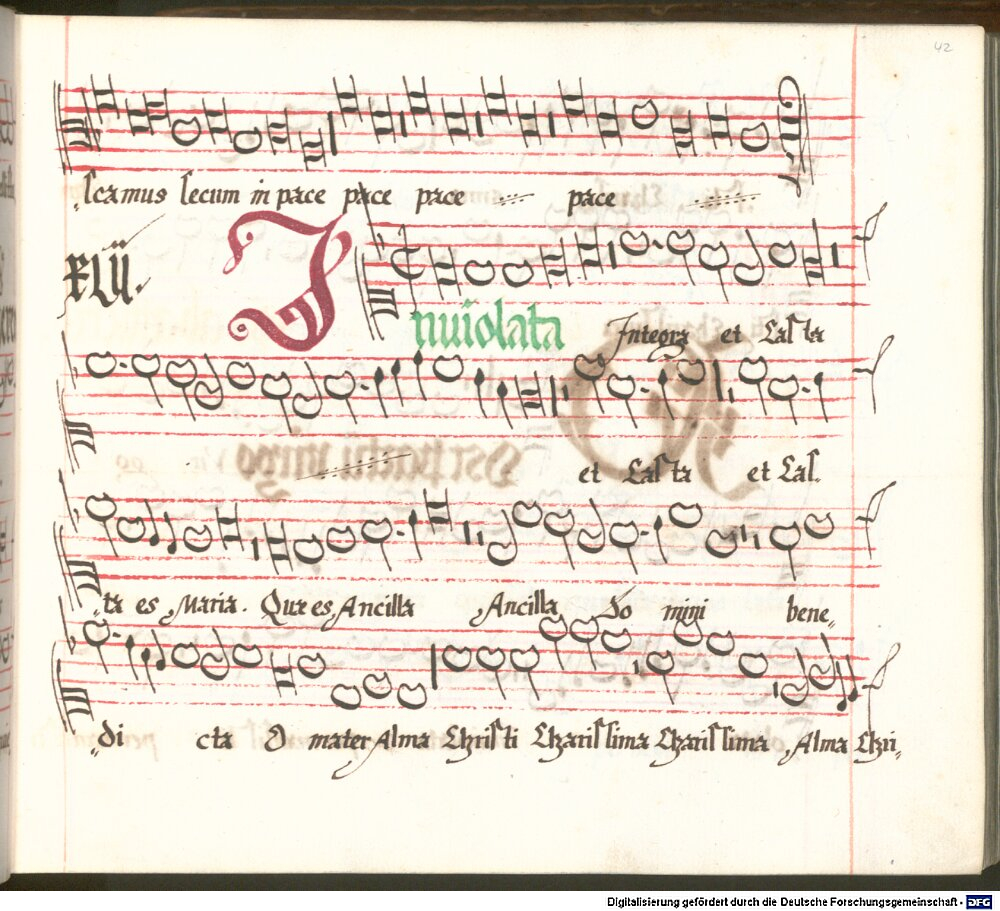 42
„scamus secum in pace pace pace pace
XLIII.
Inuiolata Integra et Casta
et Casta et Cas.
„ta es Maria. Quæ es Ancilla Ancilla Do mini bene„
„di cta O mater Alma Christi Charissima Charissima Alma Chri„
Digitalisierung gefördert durch die Deutsche Forschungsgemeinschaft - DFG